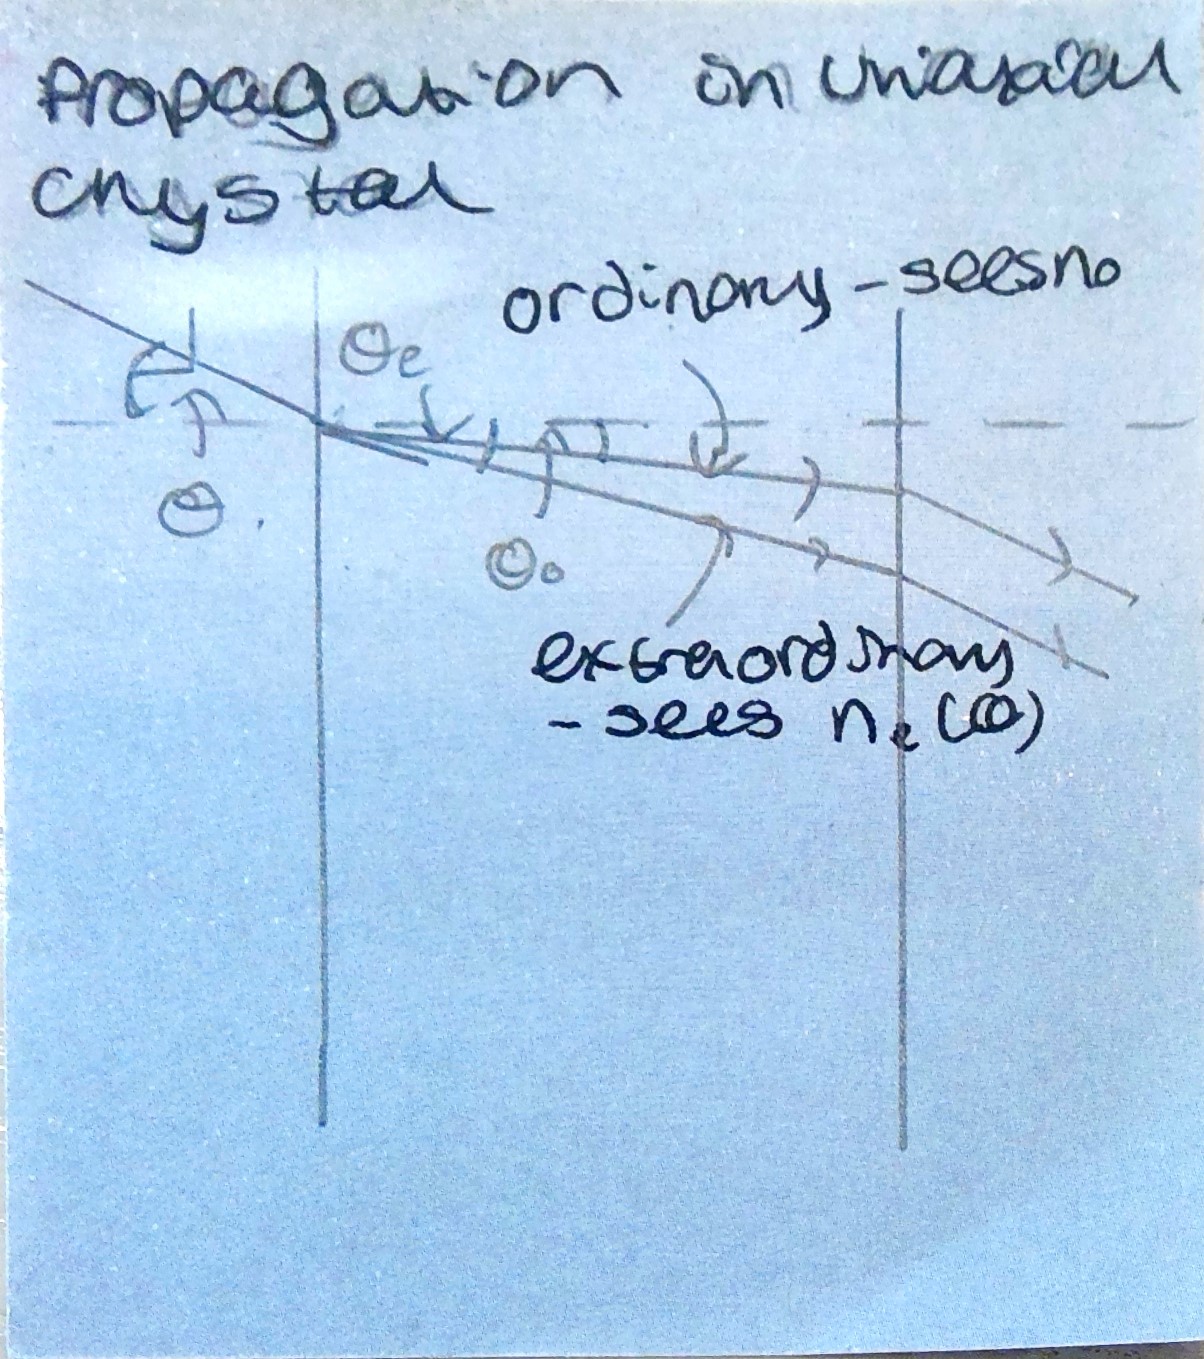 Propagation in uniaxial
crystal
ordinary - sees no
θe
θ.
θo
extraordinary
- sees ne(θ)